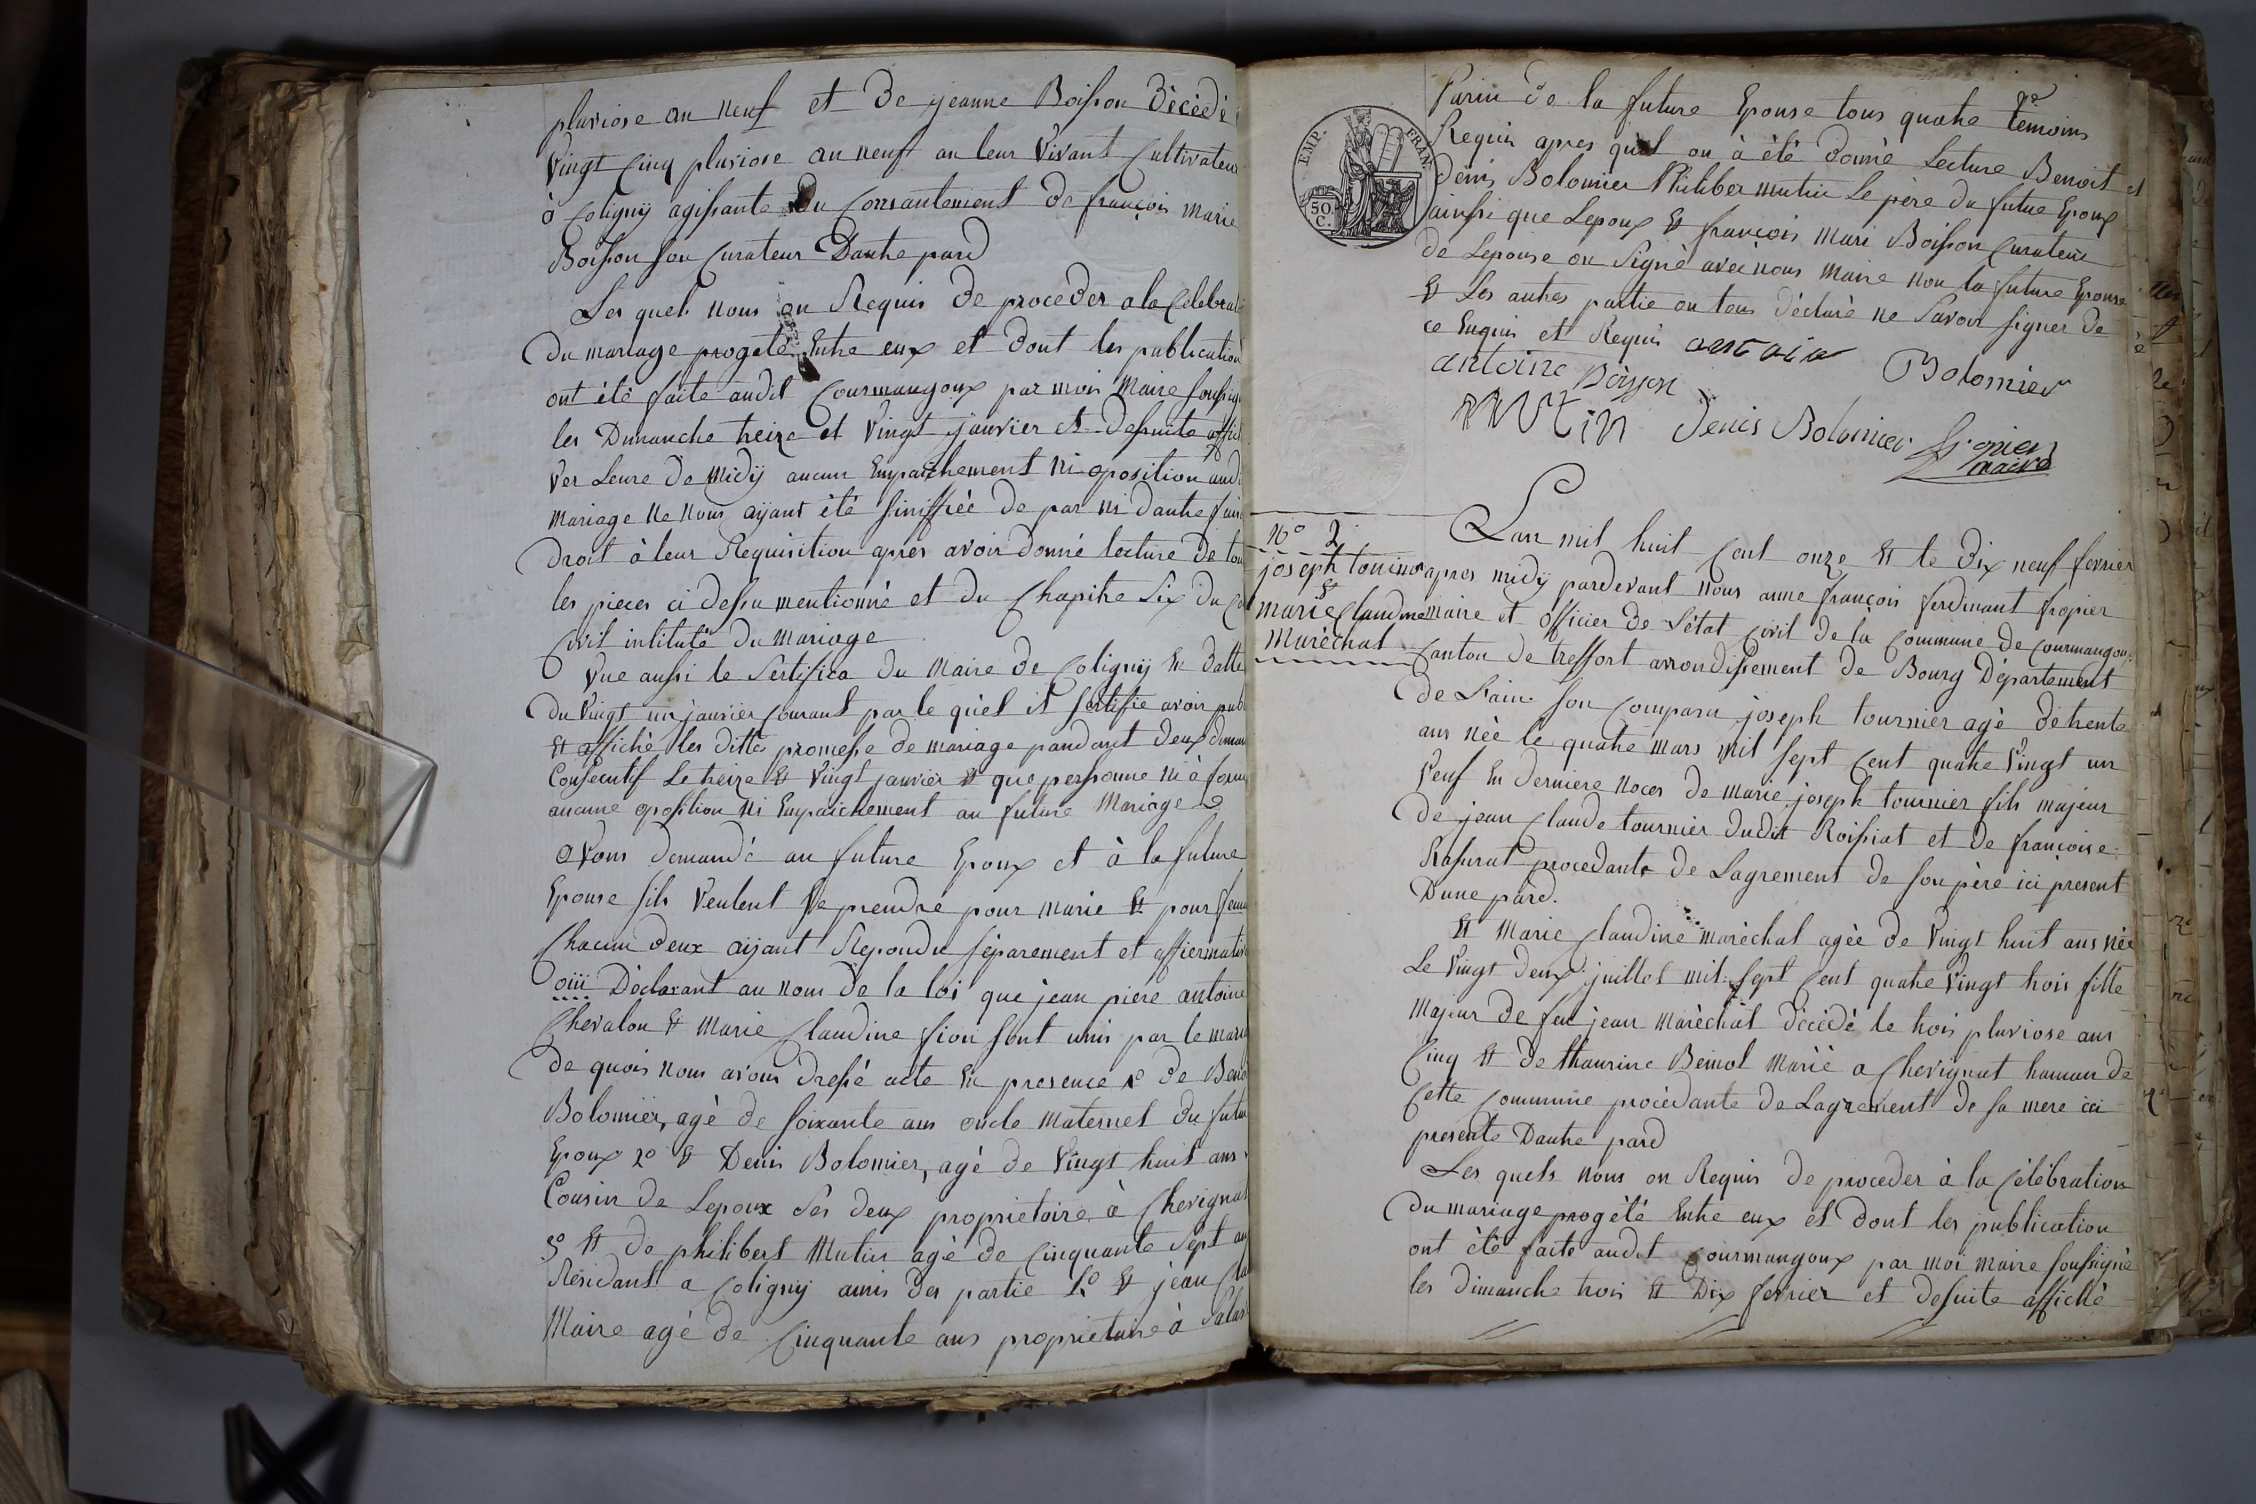 pluviose an neuf et de jeanne Boisson décédé
Vingt Cinq pluviose an neuf au leur Vivant Cultivateur
à Coligny agissante du Consantement de françois marie
Boisson son Curateur Dautre pard
Les quels nous on Requis de proceder a la Celebrat
Du mariage progeté Entre eux et dont les publication
ont été faite audit Courmangoux par moi Maire soussig
les Dimanche treize et Vingt janvier et desuite affich
Ver Leure de Midÿ aucun Empaichement ni oposition aud
mariage ne nous ayant été sinifféé de par ni dautre fais
droit à leur Requisition apres avoir donné lecture de tou
les pieces ci dessu mentionné et du Chapitre Six du Co
Civil intitulé du mariage
Vue aussi le Sertifica du Maire de Coligny En datte
du Vingt un janvier Courant par le quel il sertifie avoir pub
Et affiché les ditte promesse de mariage pandant deux diman
Consecutif Le treize Et Vingt janvier Et que personne ni à form
aucune oposition ni Empaichement au future Mariage
avons demandé au future Epoux et à la future
Epouse sils Veulent se prendre pour marie Et pour femm
Chacun deux aÿant Repondu séparement et affiermativ
oüi Déclarant au nom de la loi que jean piere antoine
Chevalon Et Marie Claudine fion sont unis par le maria
de quoi nous avons dressé acte En presence 1º de Benoi
Bolomier, agé de soixante ans oncle maternel du futur
Epoux 2º Et Denis Bolomier, agé de Vingt huit ans
Cousin de Lepoux Les deux proprietoire à Chevignat
3º Et de philibert Mutin agé de Cinquante Sept an
Residant a Coligny amis des partie 4º Et jean Cla
Maire agé de Cinquante ans proprietaire à Salav
EMP. FRAN.
50.
C.
Parin de la future Epouse tous quatre témoins
Requis apres quel on à été donné Lecture Benoit et
denis Bolomier Philiber mutin Le père du future Epoux
ainssi que Lepoux Et françois Mari Boisson Curateur
de Lepouse on Signé avec nous Maire non la future Epouse
Et Les autres partie on tous déclaré ne Savoir signer de
ce Enquis et Requis
antoine Boisson Bolomier
mutin denis Bolomier
maire
Nº 2
joseph tournier
Et
marie Claudine
Maréchal
Lan mil huit Cent onze Et le dix neuf fevrier
apres midÿ pardevant nous anne françois ferdinant fropier
maire et officier de Létat Civil de la Commune de Courmangoux
Canton de treffort arrondissement de Bourg Département
de Lain son Comparu joseph tournier agé de trente
ans néé le quatre mars mil sept Cent quatre Vingt un
Veuf En derniere noces de marie joseph tournier fils majeur
de jean Claude tournier dudit Roissiat et de françoise
procedante de Lagrement de son père ici present
Dune pard.
Et Marie Claudine maréchal agée de Vingt huit ans née
Le Vingt deux juillet mil sept Cent quatre Vingt trois fille
Majeur de feu jean Maréchal décédé le trois pluviose ans
Cinq Et de thaurine Bernol Marié a Chevignat hamau de
Cette Commune procédante de Lagrement de sa mere ici
presente Dautre pard
Les quels nous on Requis de proceder à la Célébration
Du mariage progété Entre eux et dont les publication
ont été faite audit Courmangoux par moi Maire soussigné
les dimanche trois Et Dix fevrier et desuite affiché